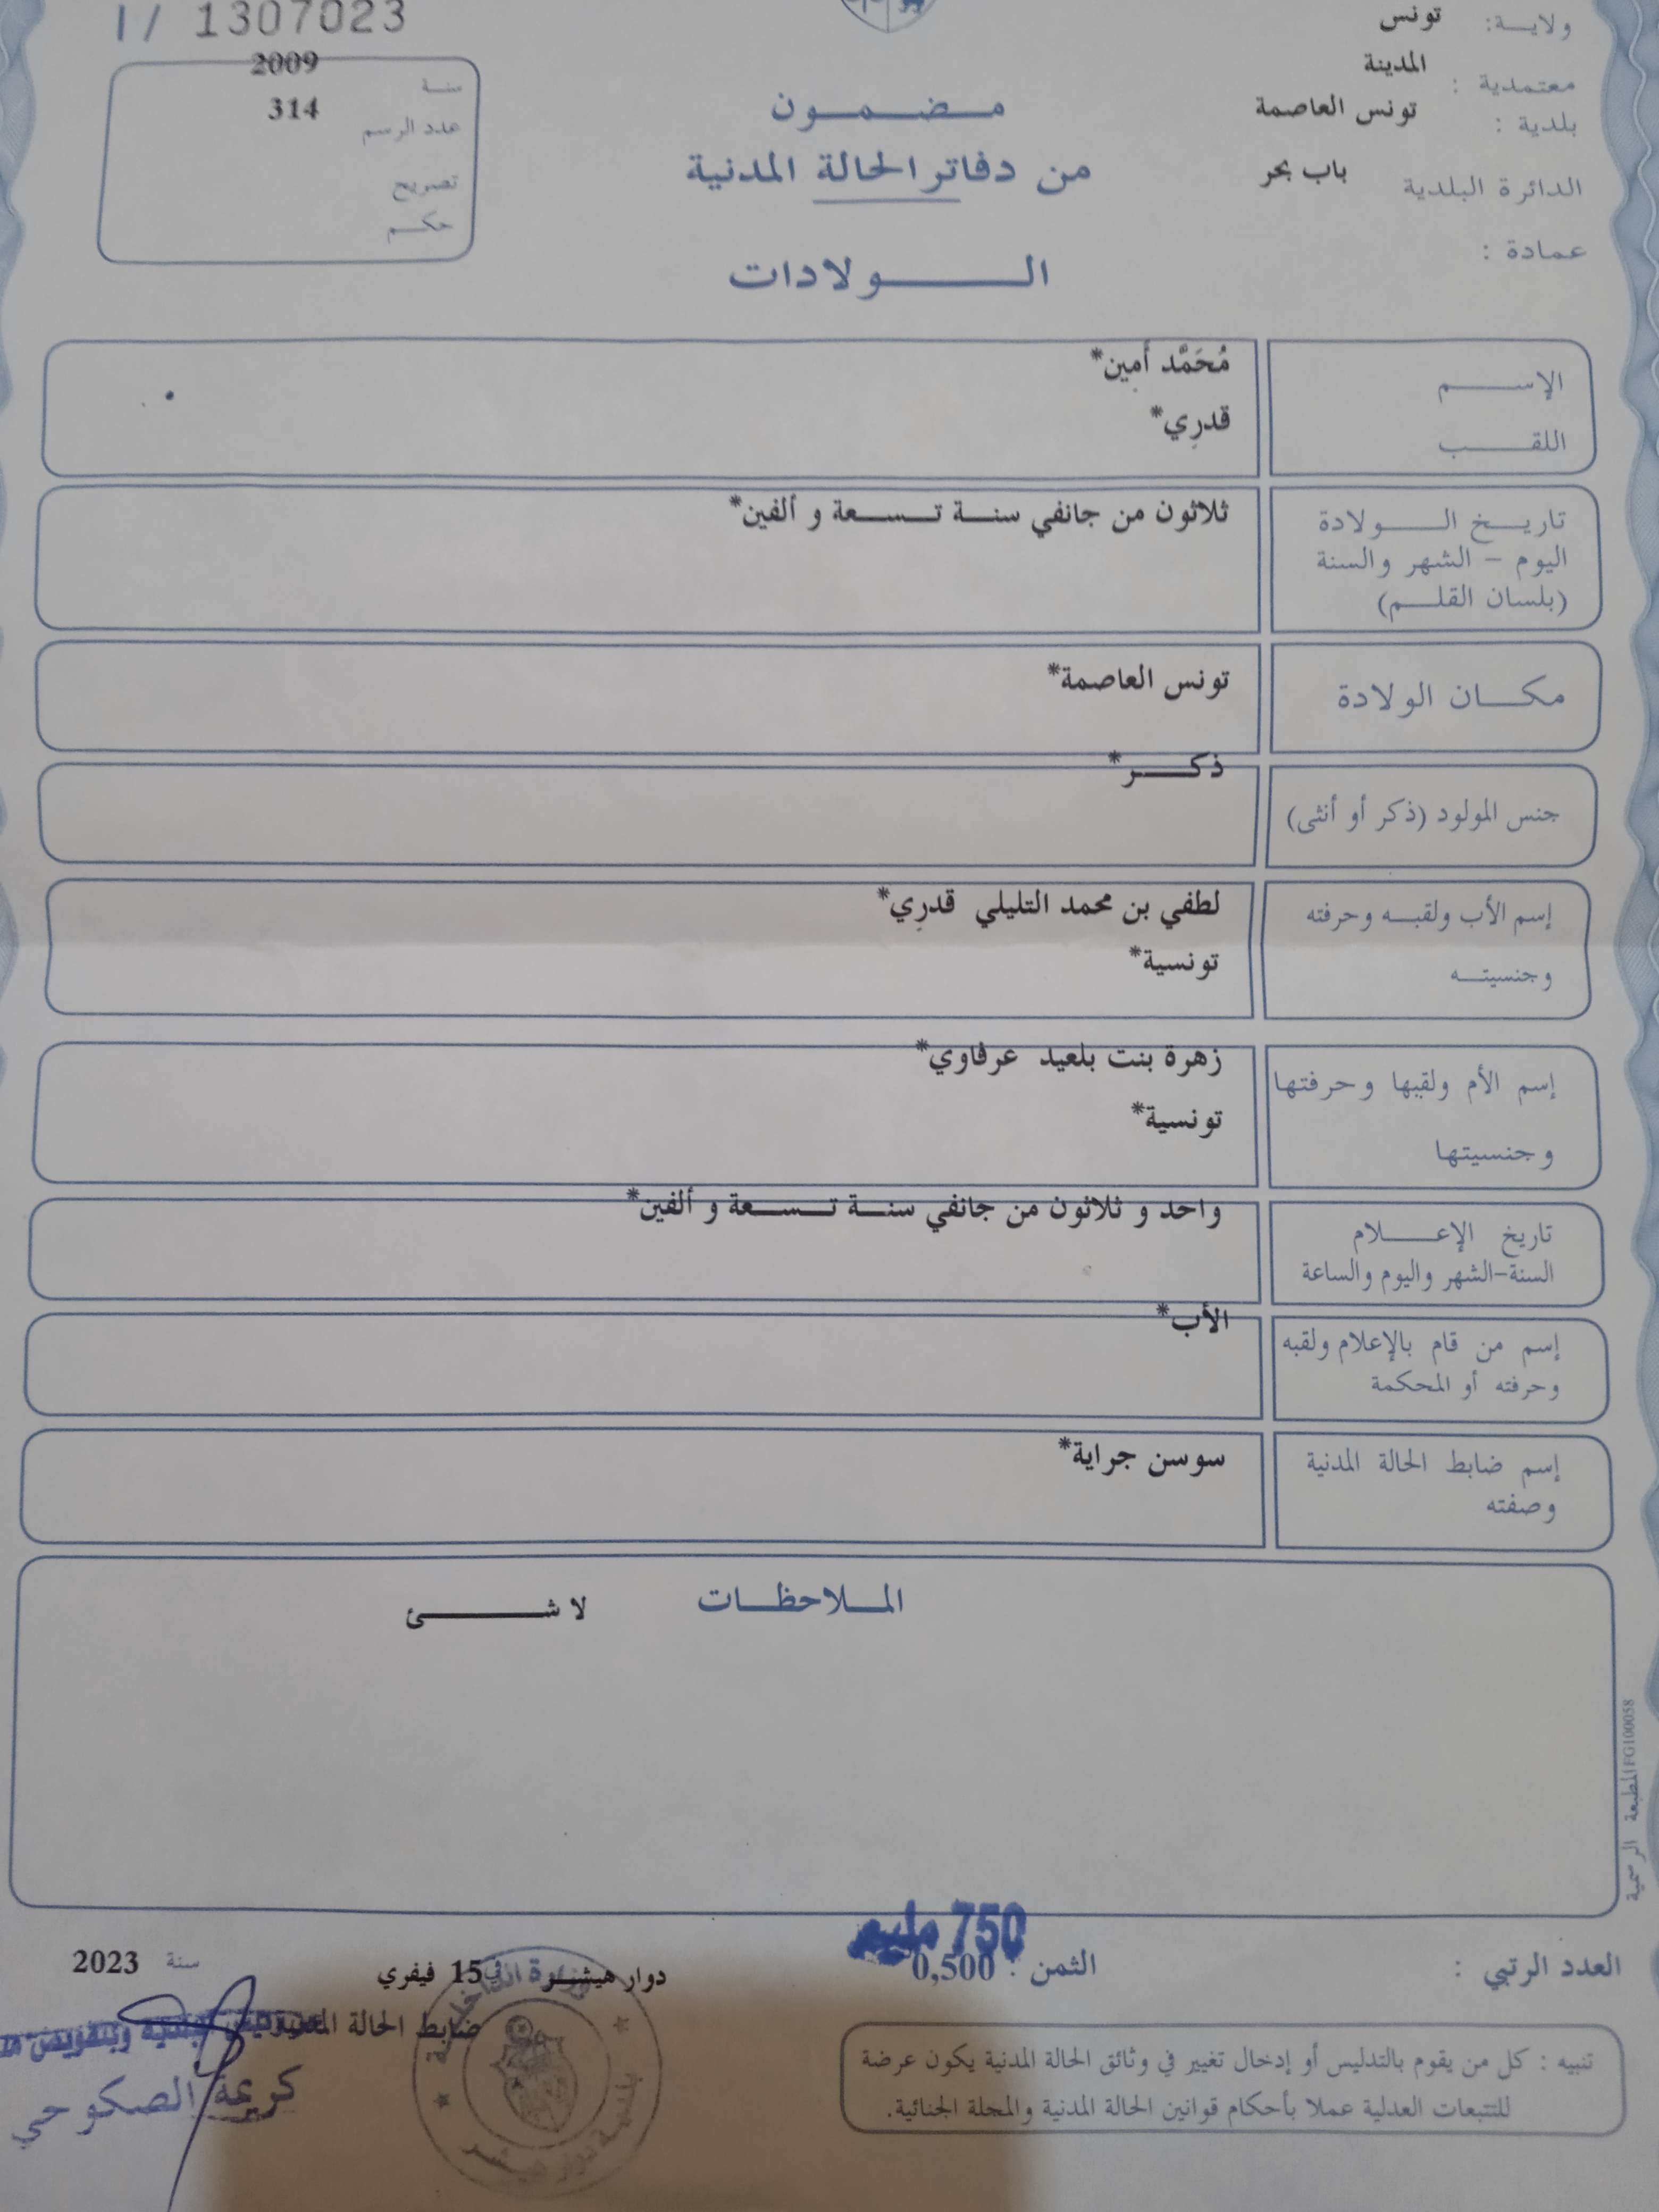 ولاية: تونس
معتمدية : المدينة
بلدية : تونس العاصمة
الدائرة البلدية باب بحر
عمادة :
1 / 1307023
سنة 2009
عدد الرسم 314
تصريح
حكم
مضمون
من دفاتر الحالة المدنية
الولادات
الإسم مُحَمَّد أمين*
اللقب قدري*
تاريخ الولادة ثلاثون من جانفي سنة تسعة و ألفين*
اليوم - الشهر والسنة
(بلسان القلم)
مكان الولادة تونس العاصمة*
جنس المولود (ذكر أو أنثى) ذكر*
إسم الأب ولقبه وحرفته لطفي بن محمد التليلي قدري*
وجنسيته تونسية*
إسم الأم ولقبها وحرفتها زهرة بنت بلعيد عرفاوي*
وجنسيتها تونسية*
تاريخ الإعلام واحد و ثلاثون من جانفي سنة تسعة و ألفين*
السنة-الشهر واليوم والساعة
إسم من قام بالإعلام ولقبه الأب*
وحرفته أو المحكمة
إسم ضابط الحالة المدنية سوسن جراية*
وصفته
الملاحظات لا شئ
المطبعة الرسمية FG100058
750 مليم
العدد الرتبي : الثمن : 0,500
دوار هيشر في 15 فيفري سنة 2023
ضابط الحالة
كريمة الصكوحي
وزارة الداخلية
بلدية دوار هيشر
تنبيه : كل من يقوم بالتدليس أو إدخال تغيير في وثائق الحالة المدنية يكون عرضة
للتتبعات العدلية عملا بأحكام قوانين الحالة المدنية والمجلة الجنائية.